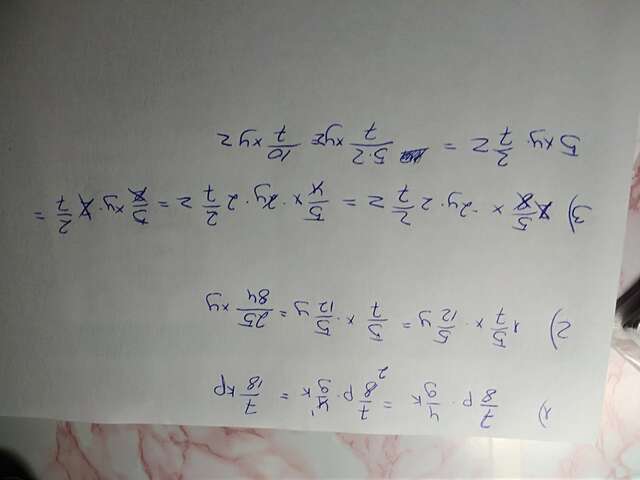 1) 7/8 p · 4/9 k = 7/8 p · 4/9 k = 7/18 kp
2) 1 5/7 x · 5/12 y = 5/7 x · 5/12 y = 25/84 xy
5/8 x · 2y · 2 2/7 z = 5/4 x · 2y · 2 2/7 z = 5/2 xy · 2/7 =
5xy · 2/7 z = 5·2/7 xyz 10/7 xyz